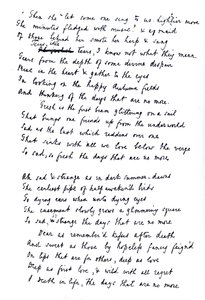 Then she "let some one sing to us lightlier move
The minutes fledged with music." & a maid
Of those behind her smote her harp & sang
tears, I know not what they mean.
Tears from the depth of some divine despair
Rise in the heart & gather to the eyes
In looking on the happy Autumn fields
And thinking of the days that are no more.
Fresh as the first beam glittering on a sail
That brings our friends up from the underworld
Sad as the last which reddens over one
That sinks with all we love below the verge
So sad, so fresh the days that are no more
Ah sad & strange as in dark summer-dawns
The earliest pipe of halfawaken'd birds
To dying ears when unto dying eyes
The casement slowly grows a glimmering square
So sad, & strange the days that are no more
Dear as remember'd kisses after death
And sweet as those by hopeless fancy feign'd
On lips that are for others, deep as love
Deep as first love, & wild with all regret
O Death in life, the days that are no more